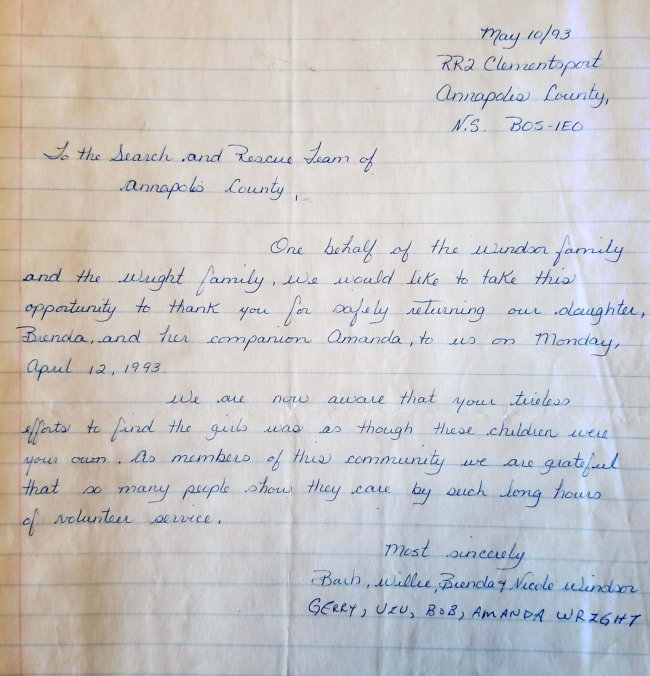 May 10/93
RR2 Clementsport
Annapolis County,
N.S. BOS-1EO
To the Search and Rescue Team of
Annapolis County,
One behalf of the Windsor family
and the Wright family, we would like to take this
opportunity to thank you for safely returning our daughter,
Brenda, and her companion Amanda, to us on Monday,
April 12, 1993.
We are now aware that your tireless
efforts to find the girls was as though these children were
your own. As members of this community we are grateful
that so many people show they care by such long hours
of volunteer service.
Most sincerely
Barb, Willie, Brenda & Nicole Windsor
GERRY, BOB, AMANDA WRIGHT